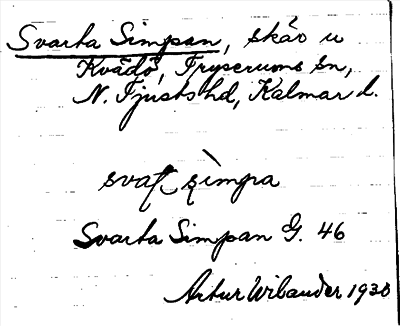 Svarta Simpan, skär u
Kvädö, Tryserums sn,
N. Tjusts hd, Kalmar l.
simpra
Svarta Simpan G. 46
Artur Wibander 1930